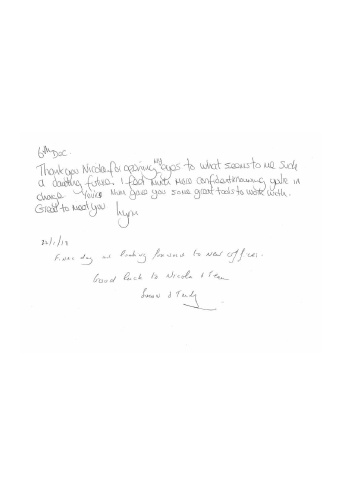 6th Dec
Thank you Nicola for opening my eyes to what seems to me such
a daunting future. I feel much more confident knowing you're in
charge
some great tools to work with.
Great to meet you
Lynn
22/1/18
day looking forward to new offices.
Good luck to Nicola & team